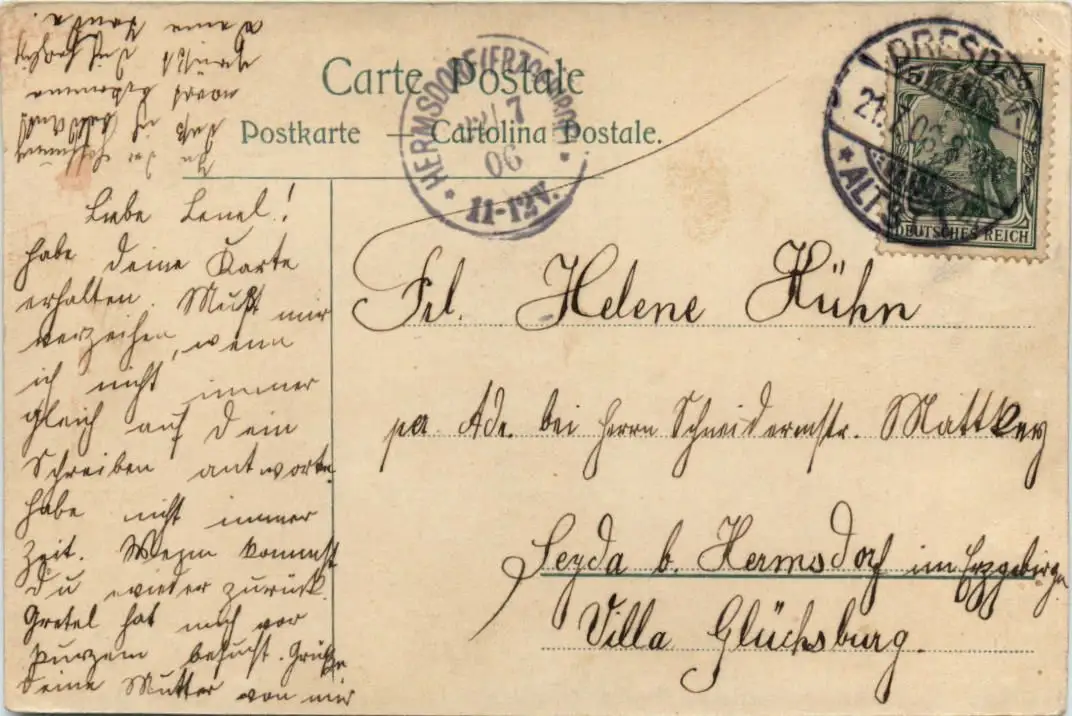 Carte Postale
Postkarte — Cartolina Postale.
HERMSDORF (ERZGEBIRGE)
7
06
11-12V.
DRESDEN
21.7.06
ALTST.
DEUTSCHES REICH
Liebe Lenel!
habe deine Karte
erhalten. Mußt mir
verzeihen, wenn
ich nicht immer
gleich auf Dein
Schreiben antworte
habe nicht immer
Zeit. Wenn kommst
Du wieder zurück.
Gretel hat mich vor
kurzem besucht. Grüße
Deine Mutter von mir
In der Hoffnung
daß ich bald
bekomme
Deine Tante
Frl. Helene Kühn
pr. Adr. bei Herrn Schneidermstr. Mattkey
Seyda b. Hermsdorf im Erzgebirge
Villa Glücksburg.